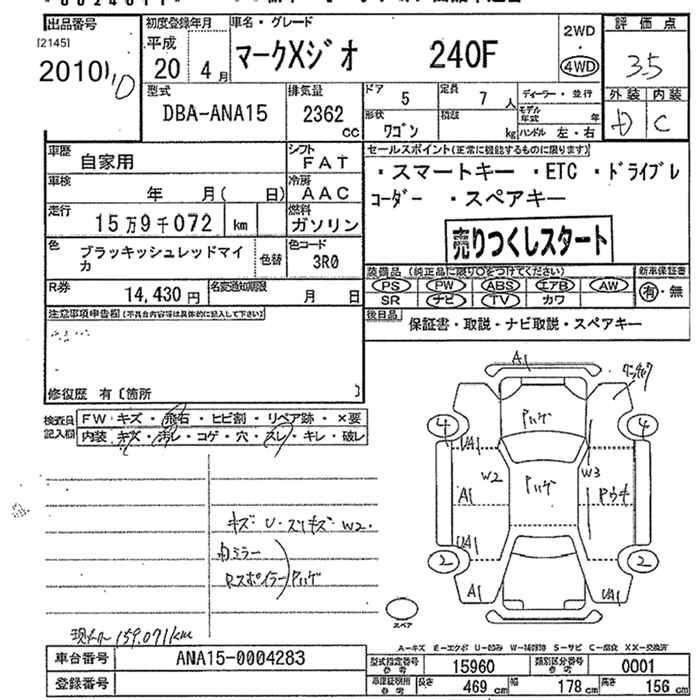 出品番号
[2145]
2010
初度登録年月
平成
20 4月
車名・グレード
マークXジオ 240F
2WD
4WD
評価点
3.5
外装 内装
D C
型式
DBA-ANA15
排気量
2362
cc
ドア
5
定員
7人
ディーラー・並行
形状
ワゴン
積載
kg
モデル年式 年
ハンドル 左・右
車歴
自家用
シフト
FAT
セールスポイント(正常に機能するものに限ります)
・スマートキー ・ETC ・ドライブレコーダー ・スペアキー
売りつくしスタート
車検
年 月( 日)
冷房
AAC
走行
15万9千072 km
燃料
ガソリン
色
ブラッキッシュレッドマイカ
色替
色コード
3R0
R券
14,430円
名変通知期限
月 日
装備品(純正品に限り○をつけてください)
PS PW ABS エアB AW
SR ナビ TV カワ
新車保証書
有・無
注意事項申告欄(不具合内容等は具体的に記入して下さい)
後日品
保証書・取説・ナビ取説・スペアキー
修復歴 有〔箇所 〕
検査員記入欄
FW キズ・飛石・ヒビ割・リペア跡・×要
内装 キズ・汚レ・コゲ・穴・スレ・キレ・破レ
キズ・U・スリキズ W2.
内ミラー
Rスポイラー
ハゲ
現メーター159,071km
A1
4
4
UA1
W2
W3
A1
UA1
2
2
A1
UA1
スペア
A-キズ E-エクボ U-凹み W-補修跡 S-サビ C-腐食 XX-交換済
車台番号
ANA15-0004283
型式指定番号
参考
15960
類別区分番号
参考
0001
登録番号
車庫証明用
参考
長さ
469cm
幅
178cm
高さ
156cm